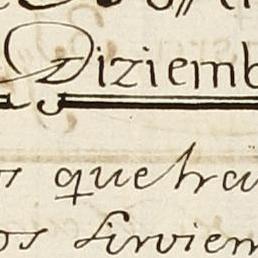 Diziemb
s que tra
os sirvien